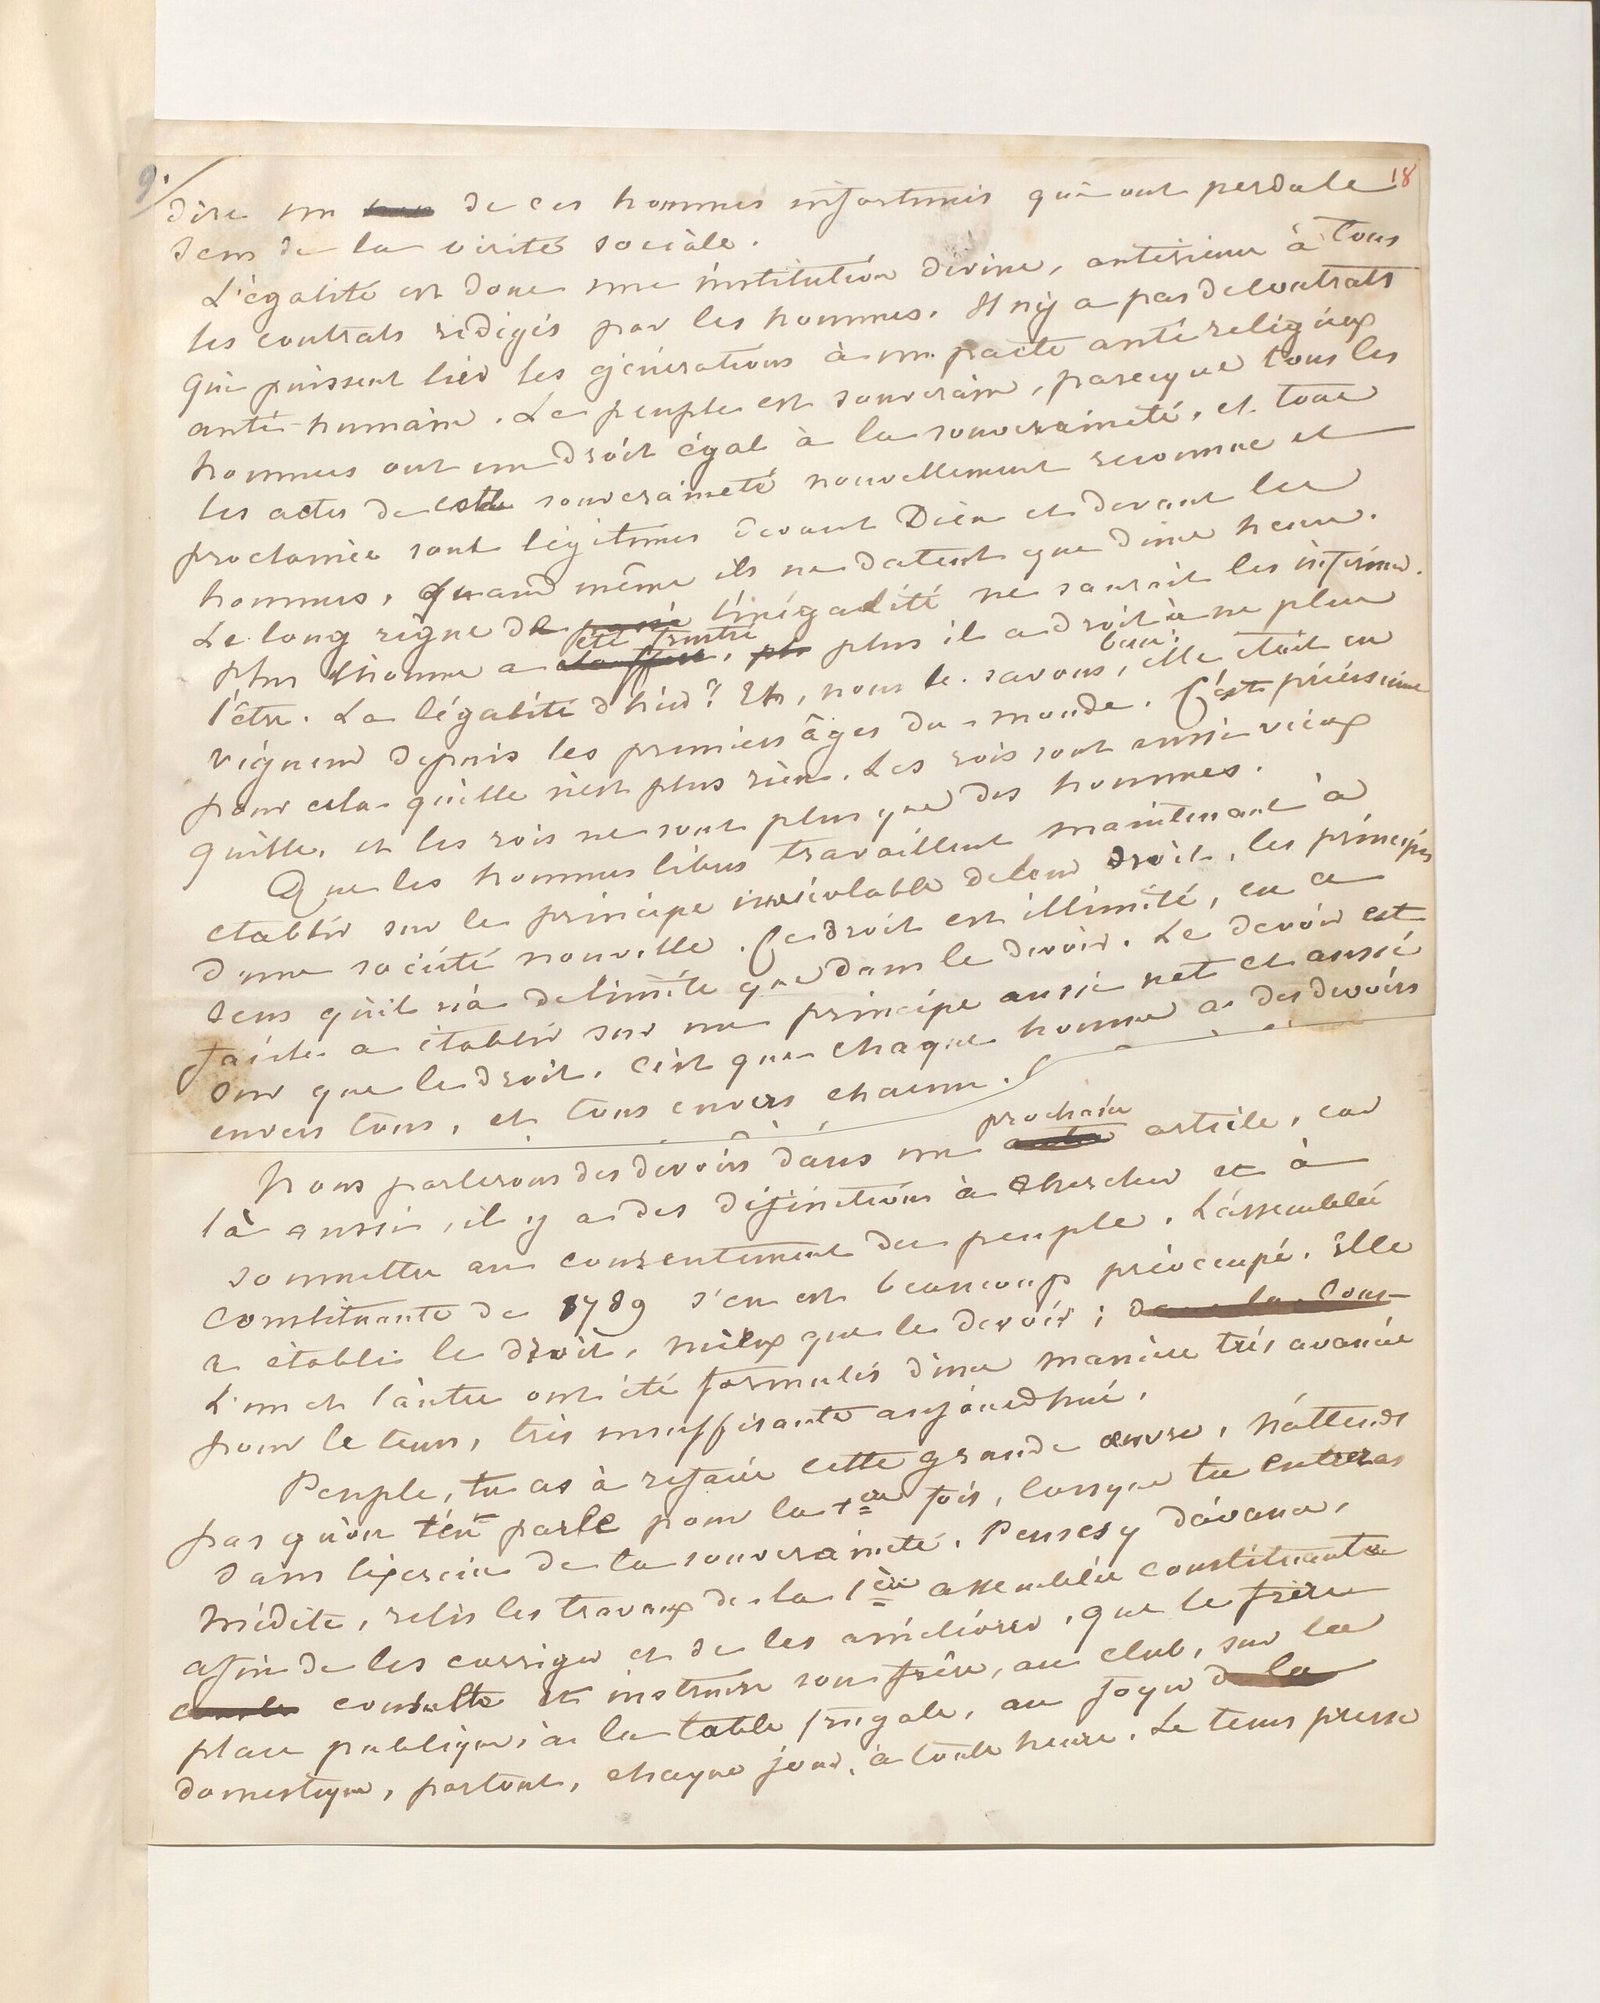 9. 18
dire un de ces hommes infortunés qui ont perdu le
sens de la vérité sociale.
L'égalité est donc une institution divine, antérieure à tous
les contrats rédigés par les hommes. Il n'y a pas de contrats
qui puissent lier les générations à un pacte anti religieux
anti-humain. Le peuple est souverain, parceque tous les
hommes ont un droit égal à la souveraineté, et tous
les actes de cette souveraineté nouvellement reconnue et
proclamée sont légitimes devant Dieu et devant les
hommes, quand même ils ne datent que d'une heure.
Le long règne de l'inégalité ne saurait les infirmer.
été frustré
Plus l'homme a , plus il a droit à ne plus
l'être. La légalité d'hier? Eh, nous le savons bien, elle était en
vigueur depuis les premiers âges du monde. C'est précisément
pour cela qu'elle n'est plus rien. Les rois sont aussi vieux
qu'elle, et les rois ne sont plus que des hommes.
Que les hommes libres travaillent maintenant à
etablir sur le principe inviolable de leur droit, les principes
d'une société nouvelle. Ce droit est illimité, en ce
sens qu'il n'a de limite que dans le devoir. Le devoir est
facile à établir sur un principe aussi net et aussi
sur que le droit. C'est que chaque homme a des devoirs
envers tous, et tous envers chacun.
prochain
Nous parlerons des devoirs dans un article, car
là aussi, il y a des définitions à chercher et à
soumettre au consentement du peuple. L'assemblée
constituante de 1789 s'en est beaucoup préoccupé. Elle
a établi le droit, mieux que le devoir; dans la Cons
L'un et l'autre ont été formulés d'une manière très avancée
pour le tems, très insuffisante aujourd'hui.
Peuple, tu as à refaire cette grande œuvre, N'attends
pas qu'on t'en parle pour la 1ere fois, lorsque tu entreras
dans l'exercice de ta souveraineté. Penses y d'avance,
Médite, relis les travaux de la 1ère assemblée constituante
afin de les corriger et de les améliorer, que le frère
consulte et instruise son frère, au club, sur la
place publique, à la table frugale, au foyer de la
domestique, partout, chaque jour, à toute heure. Le tems presse